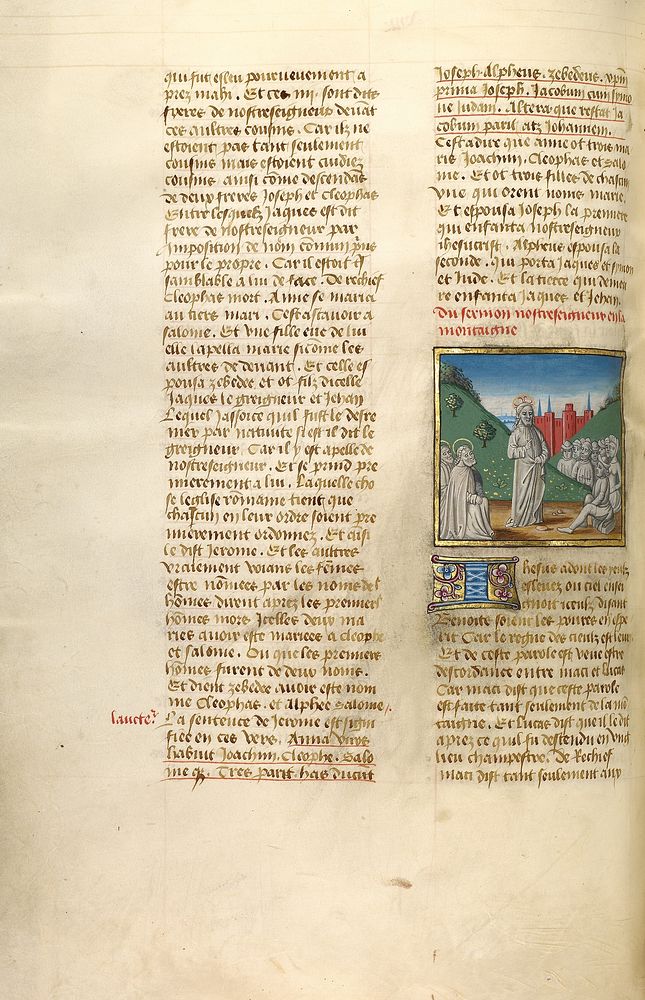 qui fut esleu pour uevement a
prez mahi. Et ces iiij. sont dits
freres de nostreseigneur devant
ces aultres cousins. Car ilz ne
estoient pas tant seulement
cousins mais estoient cuidiez
cousins ainsi cõme descendãs
de deux freres Joseph et Cleophas
Entre lesquelz Jaques est dit
frere de nostreseigneur par
imposition de nom commun
pour le propre. Car il estoit
samblable a lui de face. De rechief
Cleophas mort. Anne se maria
au tiers mari. Cest ascavoir a
salome. Et une fille eue de lui
elle lapella marie sicõme les
aultres de devant. Et celle es
pousa zebedee et ot filz dicelle
Jaques le greigneur et Jehan
Lequel Jassorce quil fust le desre
nier par nativite si est il dit le
greigneur. Car il y est apelle de
nostreseigneur. Et se prind pre
mierement a lui. Laquelle cho
se leglise romaine tient que
chascun en leur ordre soient pre
mierement ordonnez. Et ainsi
le dist Jerome. Et les aultres
vraiement voians les fẽmes
estre nõmees par les noms des
hõmes dirent aprez les premiers
hõmes mors Icelles deux ma
ries avoir este mariees a Cleophe
et salome. Ou que les premiers
hõmes furent de deux noms.
Et dient zebedee avoir este nom
me Cleophas. et Alphee Salome.
laucteʳ
La sentence de Jerome est signi
fiee en ces vers. Anna viros
habuit Joachim. Cleophe. Salo
me qʒ. Tres parit. has ducunt
Joseph. Alpheus. zebedeus. xpm
prima Joseph. Jacobum cum symo
ne Judam. Altera que restat Ja
cobum parit atz Johannem.
Cest adire que anne ot trois ma
ris Joachim. Cleophas et Salo
me. Et ot trois filles de chascun
une qui orent noms marie.
Et espousa Joseph la premiere
qui enfanta nostreseigneur
ihesucrist. Alpheus espousa la
seconde. qui porta Jaques et symon
et Jude. Et la tierce qui demeu
re enfanta Jaques et Jehan.
Du sermon nostreseigneur en la
montaigne
Ihesus adont les yeulx
eslevez ou ciel ensei
gnoit iceulz disant
Benoite soient les povres en espe
rit Car le regne des cieulz est leur
Et de ceste parole est veue estre
descordance entre maci et lucas
Car maci dist que ceste parole
est faite tant seulement de la mõ
taigne. Et Lucas dist que il le dit
aprez ce quil fu descendu en ung
lieu champestre. De Rechief
maci dist tant seulement aux